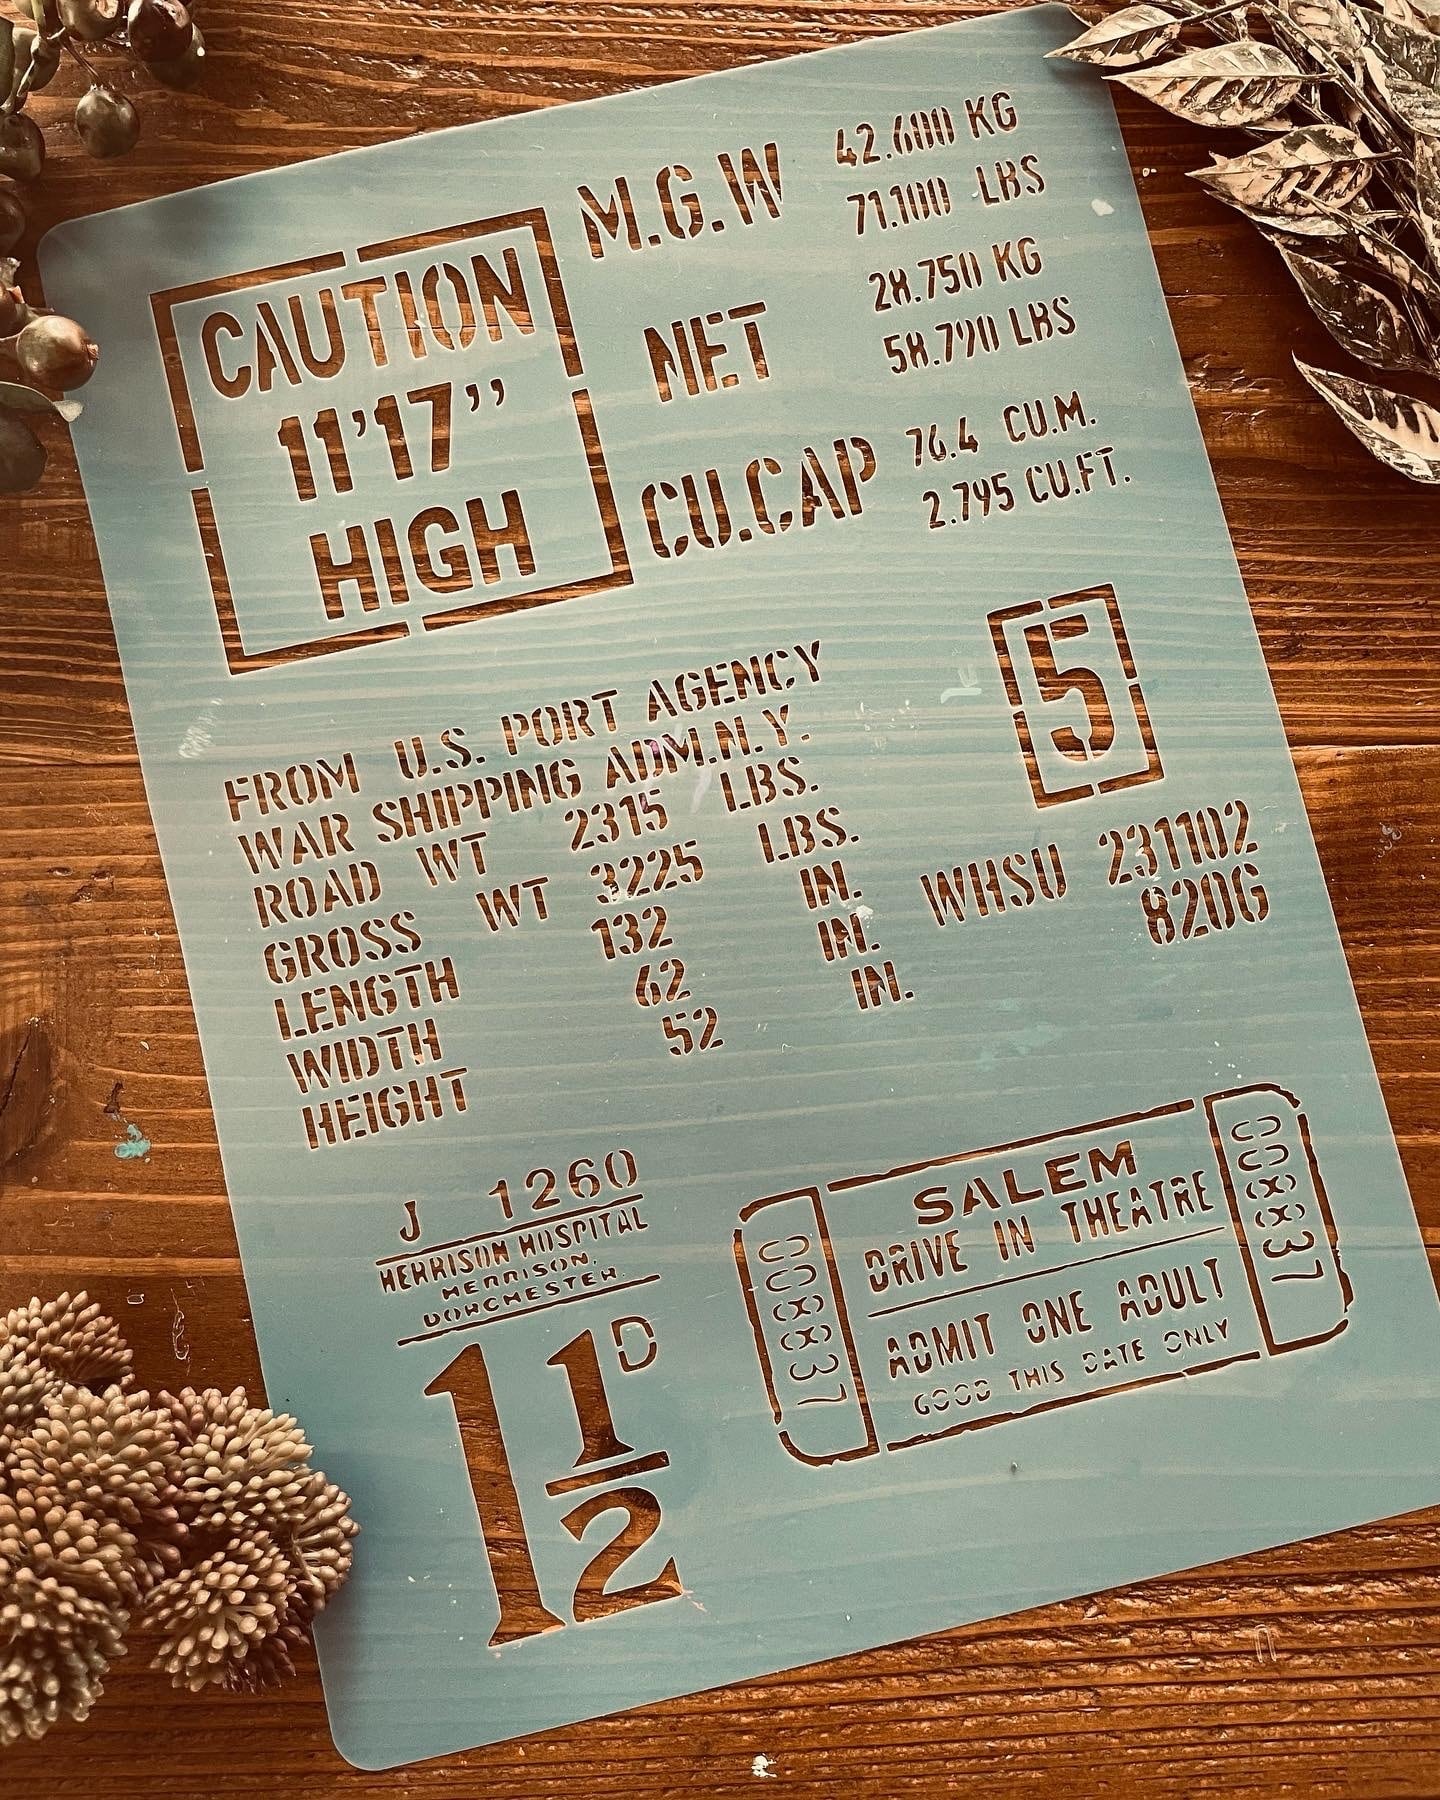 CAUTION
11'17’’
HIGH
M.G.W
42.600 KG
71.100 LBS
NET
28.750 KG
58.790 LBS
CU.CAP
76.4 CU.M.
2.795 CU.FT.
5
FROM U.S. PORT AGENCY
WAR SHIPPING ADM.N.Y.
ROAD WT 2315 LBS.
GROSS WT 3225 LBS.
LENGTH 132 IN.
WIDTH 62 IN.
HEIGHT 52 IN.
WHSU 231102
820G
J 1260
HERRISON HOSPITAL
HERRISON,
DORCHESTER.
1 1/2 D
SALEM
DRIVE IN THEATRE
ADMIT ONE ADULT
GOOD THIS DATE ONLY